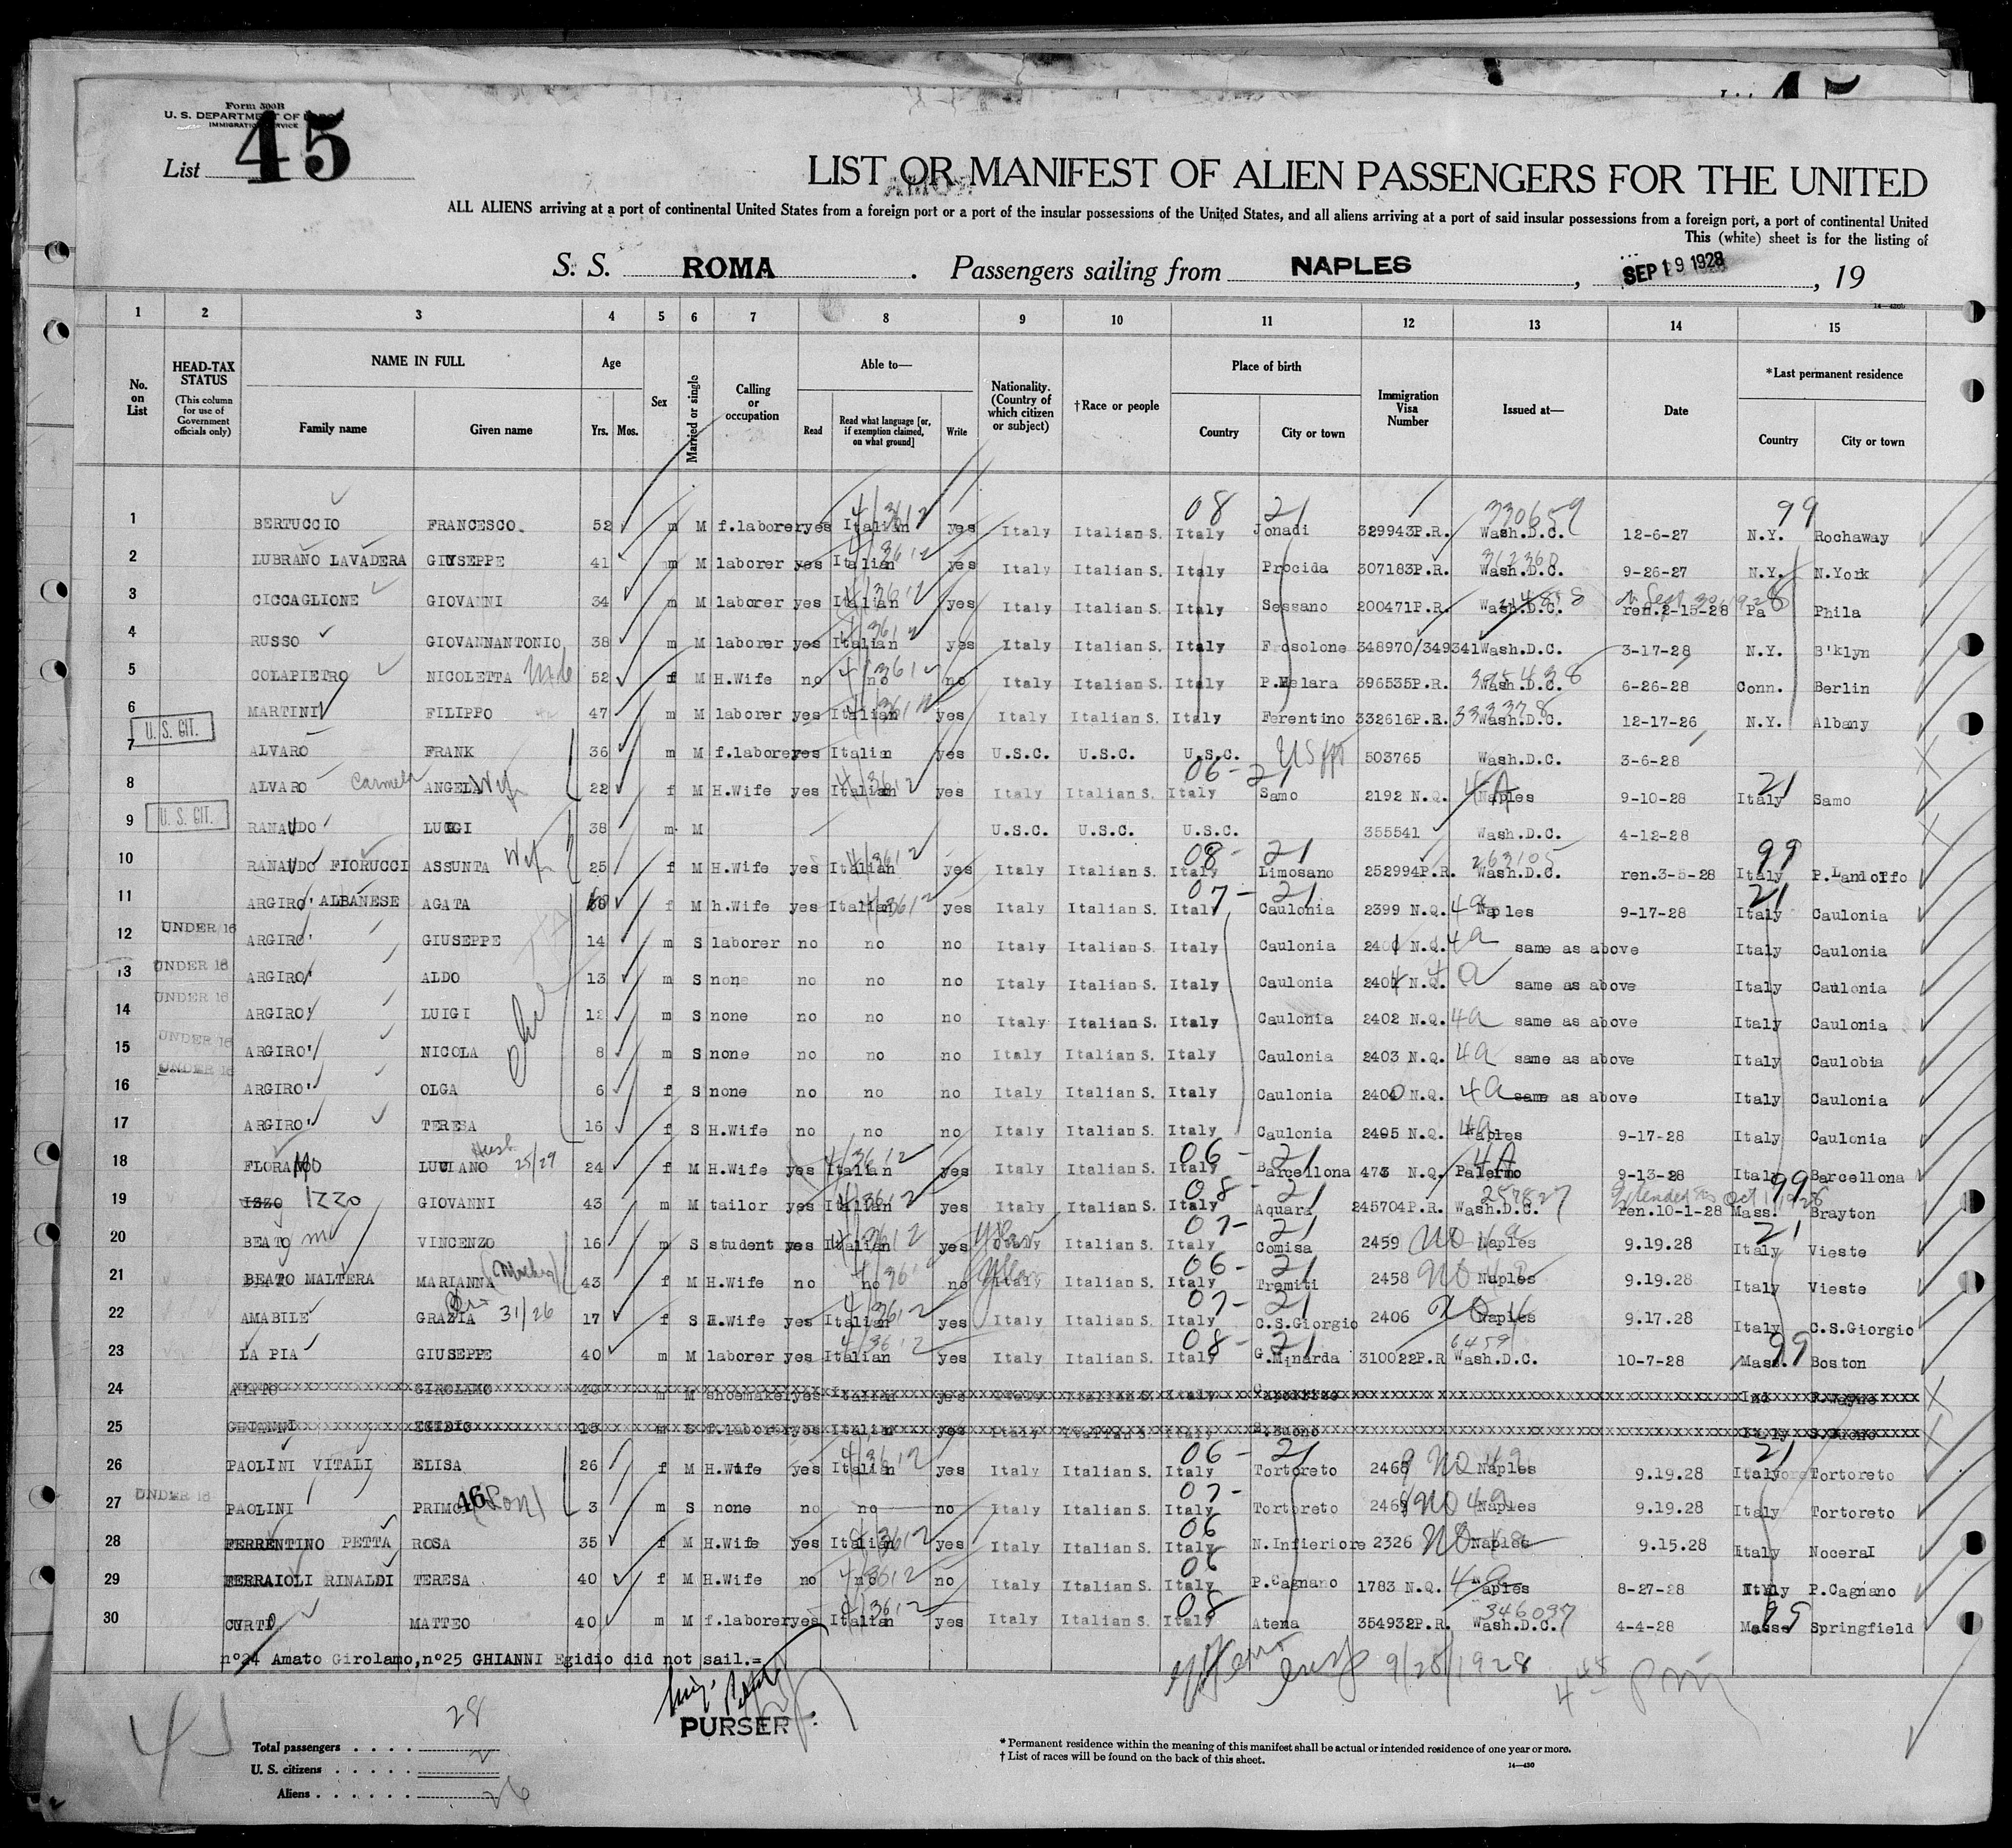 Form 500B
U. S. DEPARTMENT OF
IMMIGRATION SERVICE
List 45
LIST OR MANIFEST OF ALIEN PASSENGERS FOR THE UNITED
ALL ALIENS arriving at a port of continental United States from a foreign port or a port of the insular possessions of the United States, and all aliens arriving at a port of said insular possessions from a foreign port, a port of continental United
This (white) sheet is for the listing of
S. S. ROMA . Passengers sailing from NAPLES , SEP 19 1928 , 19
1 2 3 4 5 6 7 8 9 10 11 12 13 14 15
No. on List
HEAD-TAX STATUS (This column for use of Government officials only)
NAME IN FULL Family name Given name
Age Yrs. Mos.
Sex
Married or single
Calling or occupation
Able to— Read Read what language [or, if exemption claimed, on what ground] Write
Nationality. (Country of which citizen or subject)
†Race or people
Place of birth Country City or town
Immigration Visa Number
Issued at—
Date
*Last permanent residence Country City or town
08 21 330659 99
1 BERTUCCIO FRANCESCO 52 m M f.laborer yes Italian yes Italy Italian S. Italy Jonadi 329943P.R. Wash.D.C. 12-6-27 N.Y. Rochaway
2 LUBRANO LAVADERA GIUSEPPE 41 m M laborer yes Italian yes Italy Italian S. Italy Procida 307183P.R. Wash.D.C. 9-26-27 N.Y. N.York
3 CICCAGLIONE GIOVANNI 34 m M laborer yes Italian yes Italy Italian S. Italy Sessano 200471P.R. Wash.D.C. ren.2-15-28 Pa Phila
4 RUSSO GIOVANNANTONIO 38 m M laborer yes Italian yes Italy Italian S. Italy Frosolone 348970/349341 Wash.D.C. 3-17-28 N.Y. B'klyn
5 COLAPIETRO NICOLETTA 52 f M H.Wife no no no Italy Italian S. Italy P.Melara 396535P.R. Wash.D.C. 6-26-28 Conn. Berlin
6 MARTINI FILIPPO 47 m M laborer yes Italian yes Italy Italian S. Italy Ferentino 332616P.R. Wash.D.C. 12-17-26 N.Y. Albany
U. S. CIT.
7 ALVARO FRANK 36 m M f.laborer yes Italian yes U.S.C. U.S.C. U.S.C. 503765 Wash.D.C. 3-6-28
06- 21 21
8 ALVARO Carmela ANGELA Wife 22 f M H.Wife yes Italian yes Italy Italian S. Italy Samo 2192 N.Q. Naples 9-10-28 Italy Samo
U. S. CIT.
9 RANAUDO LUIGI 38 m M U.S.C. U.S.C. U.S.C. 355541 Wash.D.C. 4-12-28
08- 21 263105 99
10 RANAUDO FIORUCCI ASSUNTA Wife 25 f M H.Wife yes Italian yes Italy Italian S. Italy Limosano 252994P.R. Wash.D.C. ren.3-5-28 Italy P.Landolfo
07- 21 21
11 ARGIRO' ALBANESE AGATA f M h.Wife yes Italian yes Italy Italian S. Italy Caulonia 2399 N.Q. Naples 9-17-28 Italy Caulonia
12 UNDER 16 ARGIRO' GIUSEPPE 14 m S laborer no no no Italy Italian S. Italy Caulonia N.Q. 4a same as above Italy Caulonia
13 UNDER 16 ARGIRO' ALDO 13 m S none no no no Italy Italian S. Italy Caulonia 2401 N.Q. 4a same as above Italy Caulonia
14 UNDER 16 ARGIRO' LUIGI 12 m S none no no no Italy Italian S. Italy Caulonia 2402 N.Q. 4a same as above Italy Caulonia
15 UNDER 16 ARGIRO' NICOLA 8 m S none no no no Italy Italian S. Italy Caulonia 2403 N.Q. 4a same as above Italy Caulobia
16 UNDER 16 ARGIRO' OLGA 6 f S none no no no Italy Italian S. Italy Caulonia N.Q. 4a same as above Italy Caulonia
17 ARGIRO' TERESA 16 f S H.Wife no no no Italy Italian S. Italy Caulonia 2405 N.Q. Naples 9-17-28 Italy Caulonia
06- 21
18 FLORAMO LUCIANO 25/29 24 f M H.Wife yes Italian yes Italy Italian S. Italy Barcellona 473 N.Q. Palermo 9-13-28 Italy Barcellona
08- 21 257827 99
19 ISZO IZZO GIOVANNI 43 m M tailor yes Italian yes Italy Italian S. Italy Aquara 245704P.R. Wash.D.C. ren.10-1-28 Mass. Brayton
07- 21 21
20 BEATO VINCENZO 16 m S student yes Italian yes Italy Italian S. Italy Comisa 2459 NQ Naples 9.19.28 Italy Vieste
06- 21
21 BEATO MALTERA MARIANNA (Mother) 43 f M H.Wife no no no Italy Italian S. Italy Tremiti 2458 NQ Naples 9.19.28 Italy Vieste
07- 21
22 AMABILE GRAZIA 31/26 17 f S H.Wife yes Italian yes Italy Italian S. Italy C.S.Giorgio 2406 Naples 9.17.28 Italy C.S.Giorgio
08- 21 6459 99
23 LA PIA GIUSEPPE 40 m M laborer yes Italian yes Italy Italian S. Italy G.Minarda 310022P.R Wash.D.C. 10-7-28 Mass. Boston
24 GIROLAMO M shoemaker yes Italian yes Italy Italian S. Italy
25 GHIANNI EGIDIO 15 m S f.laborer yes Italian yes Italy Italian S. Italy S.Buono Italy S.Buono
06- 21 21
26 PAOLINI VITALI ELISA 26 f M H.Wife yes Italian yes Italy Italian S. Italy Tortoreto NQ Naples 9.19.28 Italy Tortoreto
07-
27 UNDER 16 PAOLINI PRIMO 46 (Son) 3 m S none no no no Italy Italian S. Italy Tortoreto NQ Naples 9.19.28 Italy Tortoreto
06
28 FERRENTINO PETTA ROSA 35 f M H.Wife yes Italian yes Italy Italian S. Italy N.Infieriore 2326 NQ Naples 9.15.28 Italy NoceraI
06
29 FERRAIOLI RINALDI TERESA 40 f M H.Wife no no no Italy Italian S. Italy P.Cagnano 1783 N.Q. Naples 8-27-28 Italy P.Cagnano
08 346097 99
30 CURTO MATTEO 40 m M f.laborer yes Italian yes Italy Italian S. Italy Atena 354932P.R. Wash.D.C. 4-4-28 Masss Springfield
n°24 Amato Girolamo,n°25 GHIANNI Egidio did not sail.=
9/25/1928
PURSER
Total passengers . . . . 28
U. S. citizens . . . . . 2
Aliens . . . . . . 26
* Permanent residence within the meaning of this manifest shall be actual or intended residence of one year or more.
† List of races will be found on the back of this sheet.
14—430